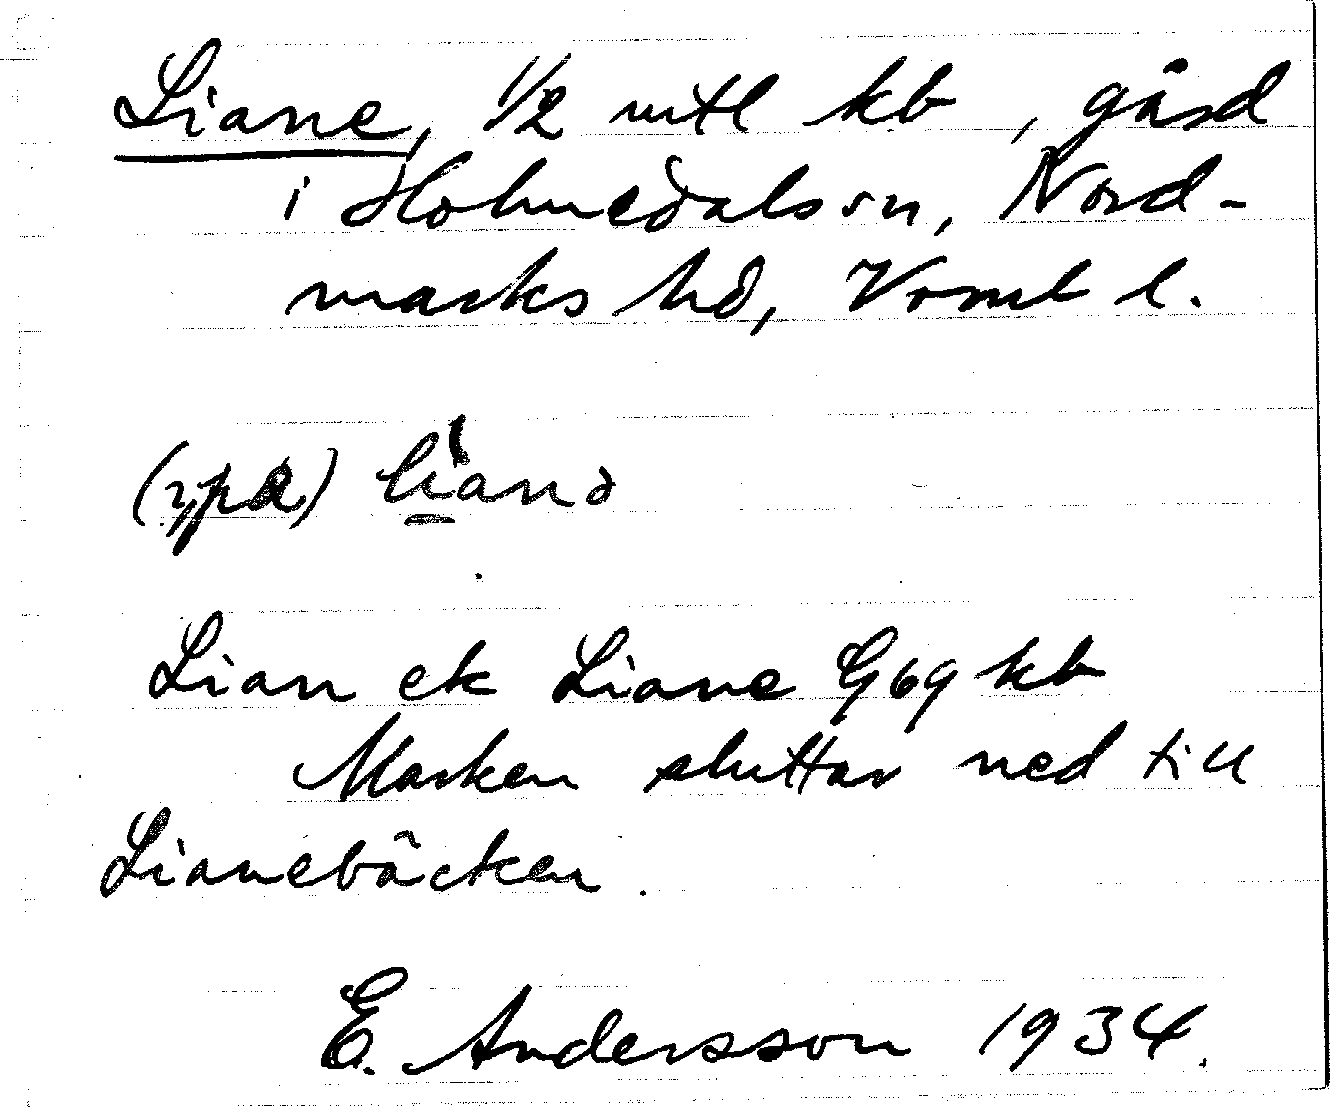 Liane, 1/2 mtl kb, gård
i Holmedals sn, Nord-
marks hd, Vrml l.
(på) lìanə
Lian ek Liane G69 kb
Marken sluttar ned till
Lianebäcken.
E. Andersson 1934.